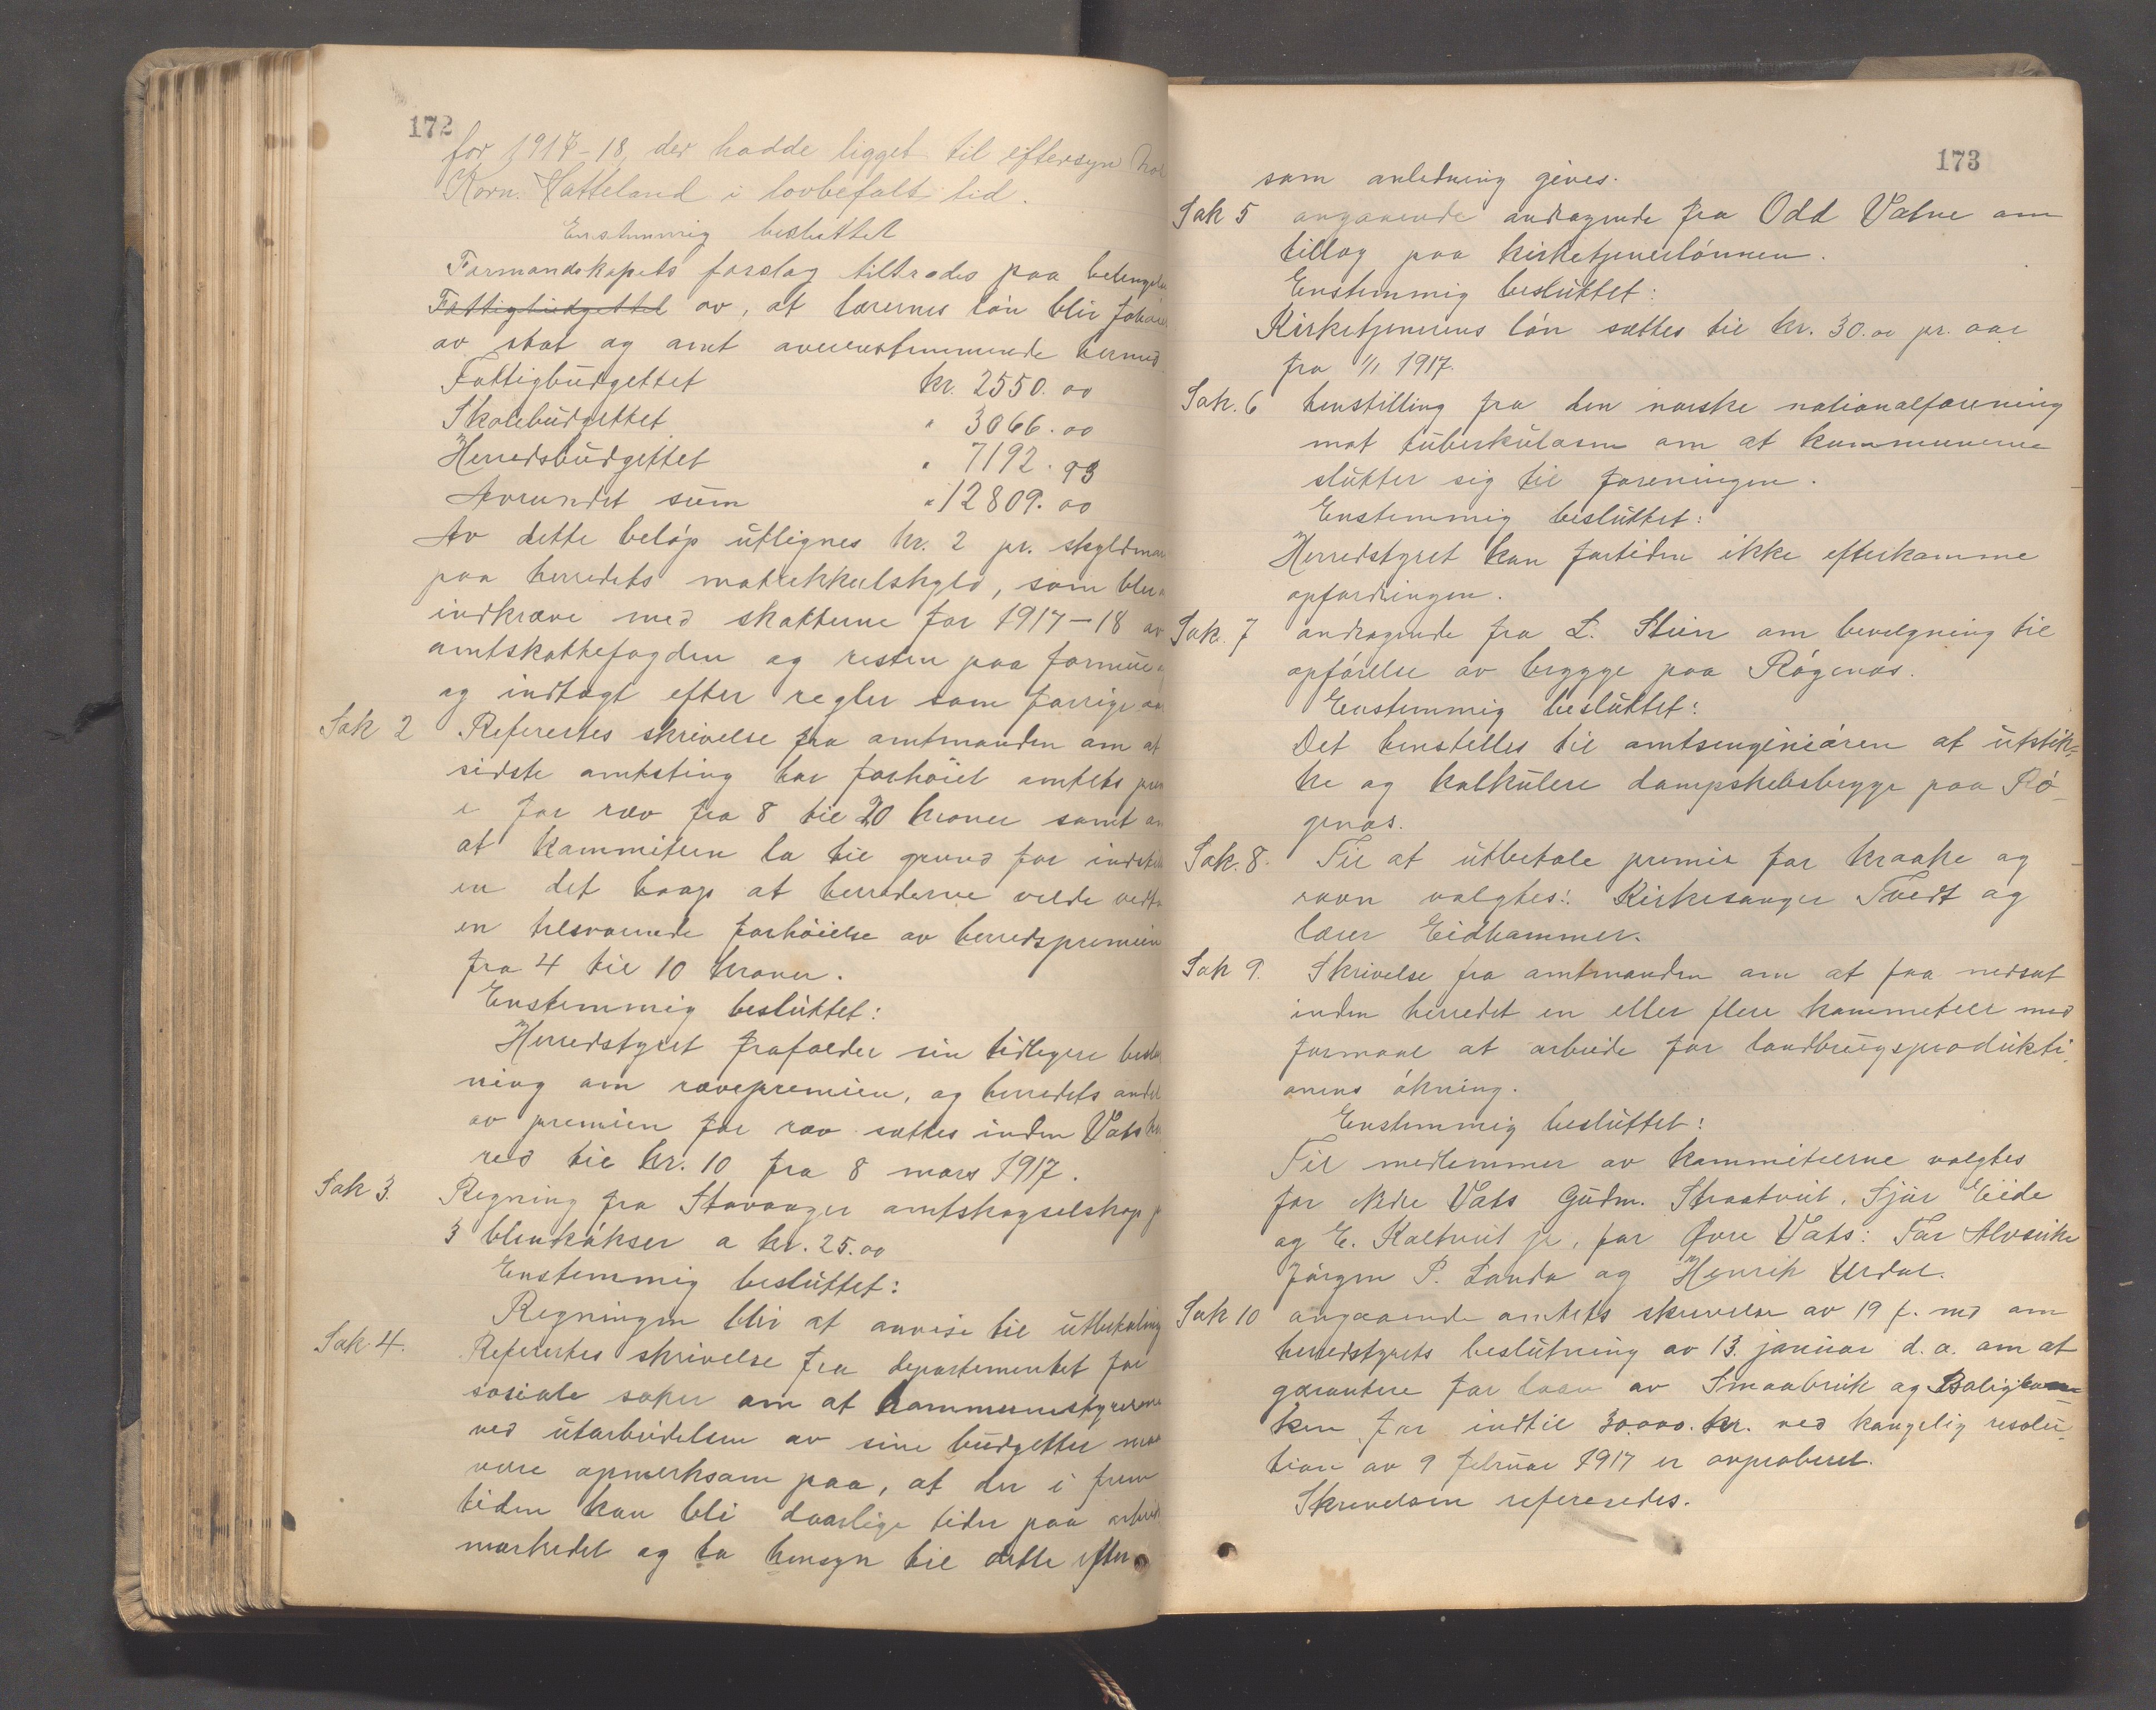 172
for 1917-18 der hadde ligget til eftersyn hos
Korn. Hatteland i lovbefalt tid.
Enstemmig besluttet
Formandskapets forslag tiltrædes paa betingelse
Fattigbudgettet av, at lærernes løn blir
av stat og amt overensstemmende hermed.
Fattigbudgettet kr. 2550.00
Skolebudgettet " 3066.00
Herredsbudgettet " 7192.93
Avrundet sum " 12809.00
Av dette beløp utlignes kr. 2 pr. skyldmark
paa herredets matrikkulskyld, som blir
indkræve med skatterne for 1917-18 av
amtskattefogden og resten paa formue
og indtægt efter regler som forrige aar
Sak 2 Refertes skrivelse fra amtmanden om at
sidste amtsting har forhöiet amtets
for ræv fra 8 til 20 kroner samt
at kommiteen la til grund for
en det haap at herrederne vilde
en tilsvarende forhöielse av herredspremien
fra 4 til 10 kroner.
Enstemmig besluttet:
Herredstyret frafalder sin tidligere beslut
ning om rævepremien, og herredets andel
av premien for ræv sættes inden Vats her
red til kr. 10 fra 8 mars 1917.
Sak 3. Regning fra Stavanger amtskogselskap
3 blinkökser a kr. 25.00
Enstemmig besluttet:
Regningen blir at anvise til utbetaling
Sak 4. Refertes skrivelse fra departementet for
sosiale saker om at kommunestyrerne
ved utarbeidelsen av sine budgetter maa
være opmerksom paa, at der i frem
tiden kan bli daarlige tider paa arbeids
markedet og ta hensyn til dette efter
173
som anledning gives.
Sak 5 angaaende andragende fra Odd Vatne om
tillæg paa kirketjenerlønnen.
Enstemmig besluttet:
Kirketjenerens løn sættes til kr. 30.00 pr. aar
fra 1/1 1917.
Sak. 6 henstilling fra den norske nationalforening
mot tuberkulosen om at kommunerne
slutter sig til foreningen.
Enstemmig besluttet:
Herredstyret kan fortiden ikke efterkomme
opfordringen.
Sak. 7 andragende fra L. Stein om bevilgning til
opförelse av brygge paa Røgenæs.
Enstemmig besluttet:
Det henstilles til amtsingeniøren at utstik=
ke og kalkulere dampskibsbrygge paa Rø-
genæs.
Sak. 8. Til at utbetale premie for kraake og
ravn valgtes: Kirkesanger Tvedt og
lærer Eidhammer.
Sak 9. Skrivelse fra amtmanden om at faa nedsat
inden herredet en eller flere kommiteer med
formaal at arbeide for landbrugsprodukti-
onens økning.
Enstemmig besluttet:
Til medlemmer av kommiteerne valgtes
for Nedre Vats Gudm. Straatveit, Sjur Eide
og E. Kaltveit jr, for Øvre Vats: Tor Alvseike
Jörgen P. Landa og Henrik Urdal.
Sak 10 angaaende amtets skrivelse av 19 f. md om
herredstyrets beslutning av 13. januar d.a. om at
garantere for laan av Smaabruk og Boligban
ken for indtil 30.000. kr. ved kongelig resolu-
tion av 9 februar 1917 er approberet.
Skrivelsen refereredes.